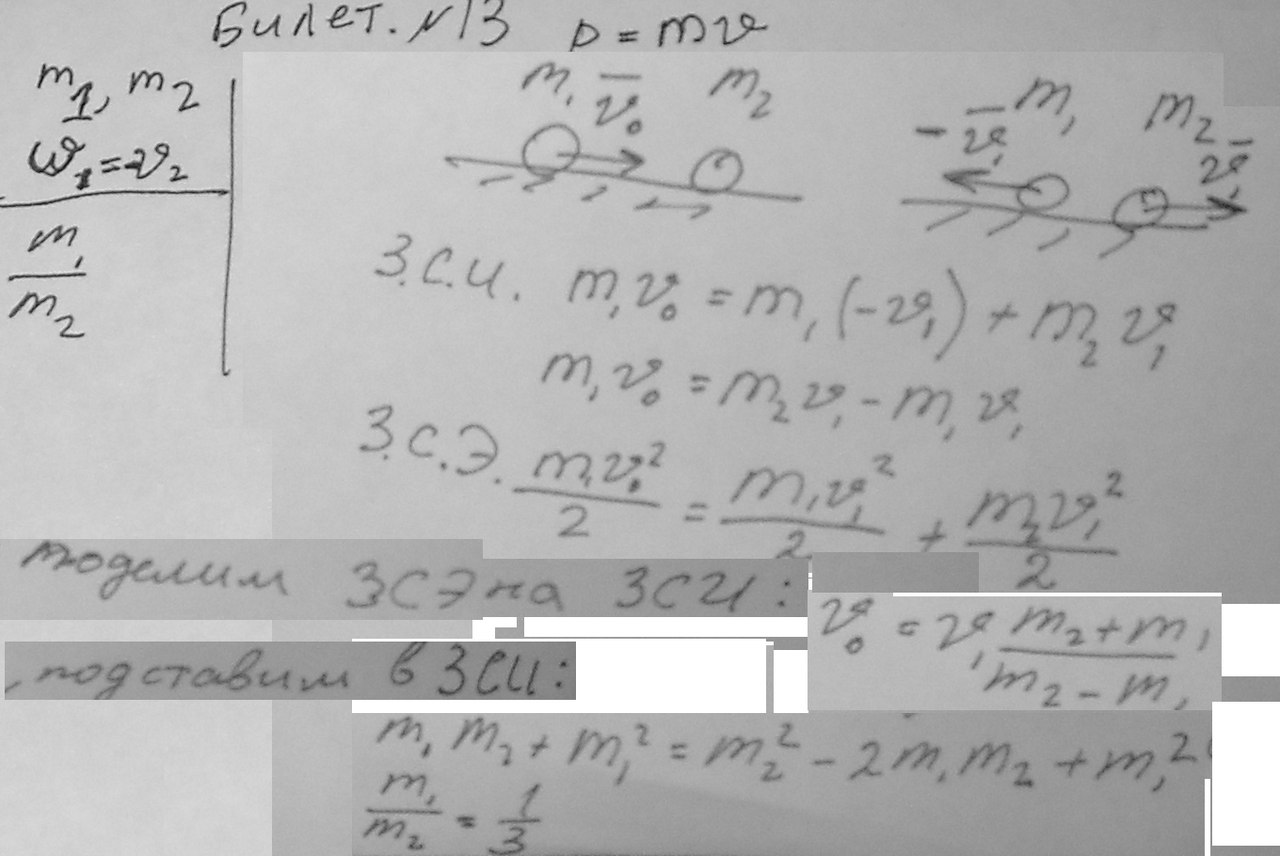 Билет. №13 p = mv
m₁, m₂
v₁ = v₂
m₁/m₂
m₁ v̅₀ m₂
-v̅₁ m₁ m₂ v̅₁
З.С.И. m₁v₀ = m₁(-v₁) + m₂v₁
m₁v₀ = m₂v₁ - m₁v₁
З.С.Э. m₁v₀²/2 = m₁v₁²/2 + m₂v₁²/2
поделим ЗСЭ на ЗСИ: v₀ = v₁ (m₂+m₁)/(m₂-m₁)
, подставим в ЗСИ:
m₁m₂ + m₁² = m₂² - 2m₁m₂ + m₁²
m₁/m₂ = 1/3